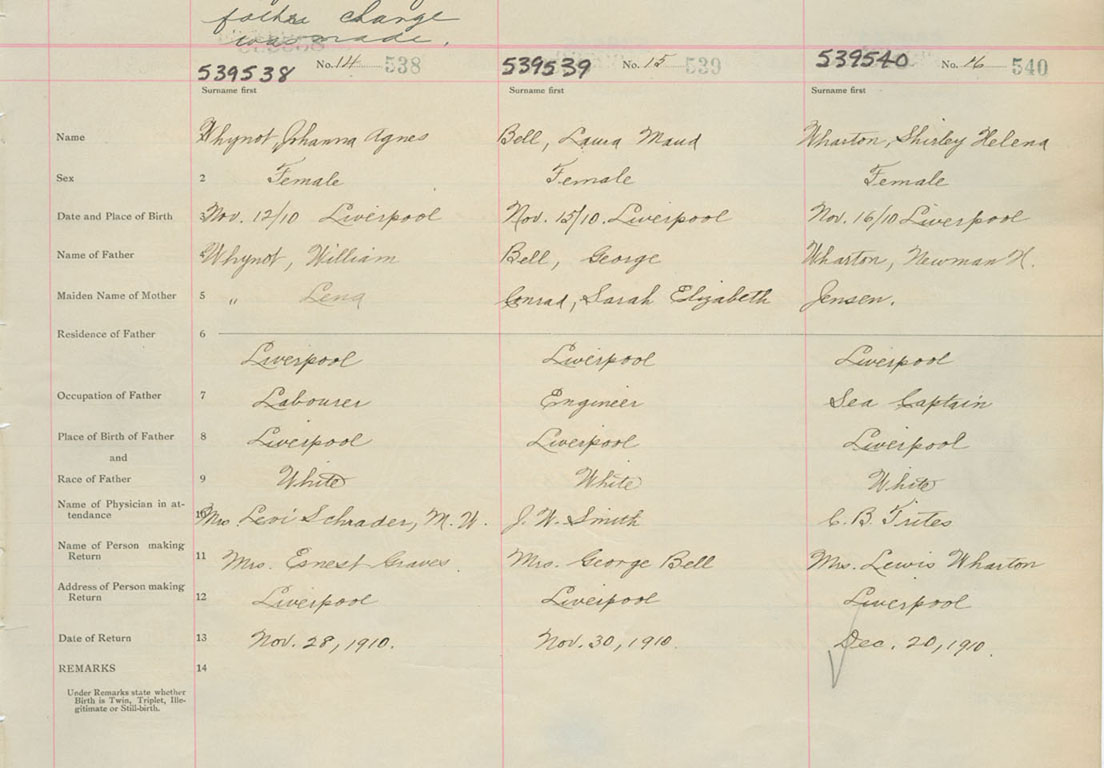 father change
was made.
539538 No. 14 538 539539 No. 15 539 539540 No. 16 540
Surname first Surname first Surname first
Name Whynot, Johanna Agnes Bell, Laura Maud Wharton, Shirley Helena
Sex 2 Female Female Female
Date and Place of Birth Nov. 12/10 Liverpool Nov. 15/10. Liverpool Nov. 16/10 Liverpool
Name of Father Whynot, William Bell, George Wharton, Newman H.
Maiden Name of Mother 5 " Lena Conrad, Sarah Elizabeth Jensen.
Residence of Father 6
Liverpool Liverpool Liverpool
Occupation of Father 7 Labourer Engineer Sea Captain
Place of Birth of Father 8 Liverpool Liverpool Liverpool
and
Race of Father 9 White White White
Name of Physician in at-
tendance 10 Mrs Levi Schrader, M. W. J. W. Smith C. B. Trites
Name of Person making
Return 11 Mrs. Ernest Graves. Mrs. George Bell Mrs. Lewis Wharton
Address of Person making
Return 12 Liverpool Liverpool Liverpool
Date of Return 13 Nov. 28, 1910. Nov. 30, 1910. Dec. 20, 1910.
REMARKS 14
Under Remarks state whether
Birth is Twin, Triplet, Ille-
gitimate or Still-birth.